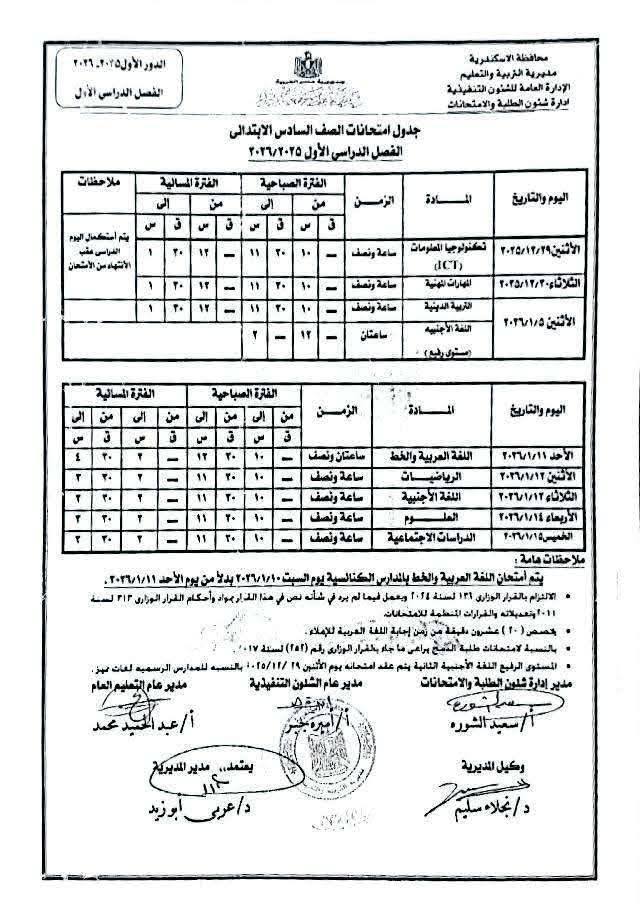 محافظة الاسكندرية
مديرية التربية والتعليم
الإدارة العامة للشئون التنفيذية
ادارة شئون الطلبة والامتحانات
جمهورية مصر العربية
الدور الأول ٢٠٢٥ـ ٢٠٢٦
الفصل الدراسي الأول
جدول امتحانات الصف السادس الابتدائى
الفصل الدراسي الأول ٢٠٢٦/٢٠٢٥
اليوم والتاريخ المــادة الزمـن الفترة الصباحية الفترة المسائية ملاحظات
من إلى من إلى
ق س ق س ق س ق س
الأثنين ٢٠٢٥/١٢/٢٩ تكنولوجيا المعلومات (ICT) ساعة ونصف ــ ١٠ ٣٠ ١١ ــ ١٢ ٣٠ ١ يتم أستكمال اليوم الدراسى عقب الأنتهاء من الأمتحان
الثلاثاء ٢٠٢٥/١٢/٣٠ المهارات المهنية ساعة ونصف ــ ١٠ ٣٠ ١١ ــ ١٢ ٣٠ ١
الأثنين ٢٠٢٦/١/٥ التربية الدينية ساعة ونصف ــ ١٠ ٣٠ ١١ ــ ١٢ ٣٠ ١
اللغة الأجنبيه (مستوى رفيع) ساعتان ــ ١٢ ــ ٢
اليوم والتاريخ المــادة الزمـن الفترة الصباحية الفترة المسائية
من إلى من إلى من إلى من إلى
ق س ق س ق س ق س
الأحد ٢٠٢٦/١/١١ اللغة العربية والخط ساعتان ونصف ــ ١٠ ٣٠ ١٢ ــ ٢ ٣٠ ٤
الأثنين ٢٠٢٦/١/١٢ الرياضيــات ساعة ونصف ــ ١٠ ٣٠ ١١ ــ ٢ ٣٠ ٣
الثلاثاء ٢٠٢٦/١/١٣ اللغة الأجنبية ساعة ونصف ــ ١٠ ٣٠ ١١ ــ ٢ ٣٠ ٣
الأربعاء ٢٠٢٦/١/١٤ العلــوم ساعة ونصف ــ ١٠ ٣٠ ١١ ــ ٢ ٣٠ ٣
الخميس ٢٠٢٦/١/١٥ الدراسات الاجتماعية ساعة ونصف ــ ١٠ ٣٠ ١١ ــ ٢ ٣٠ ٣
ملاحظات هامة :
يتم أمتحان اللغة العربية والخط بالمدارس الكنائسية يوم السبت ٢٠٢٦/١/١٠ بدلاً من يوم الأحد ٢٠٢٦/١/١١ .
• الالتزام بالقرار الوزارى ١٣٦ لسنة ٢٠٢٤ ويعمل فيما لم يرد في شأنه نص في هذا القرار بمواد وأحكام القرار الوزارى ٣١٣ لسنة
٢٠١١ وتعديلاته والقرارات المنظمة للامتحانات.
• يخصص (٢٠) عشرون دقيقة من زمن إجابة اللغة العربية للإملاء .
• بالنسبة لامتحانات طلبة الدمج يراعى ما جاء بالقرار الوزارى رقم (٢٥٢) لسنة ٢٠١٧ .
• المستوى الرفيع اللغة الأجنبية الثانية يتم عقد امتحانه يوم الأثنين ٢٠٢٥/١٢/٢٩ بالنسبه للمدارس الرسميه لغات تميز .
مدير إدارة شئون الطلبة والامتحانات
أ/ سعيد الشوره
مدير عام الشئون التنفيذية
أ/ أميرة نجيز
مدير عام التعليم العام
أ/ عبد الحميد محمد
وكيل المديرية
د/ نجلاء سليم
يعتمد،، مدير المديرية
د/ عربى أبو زيد